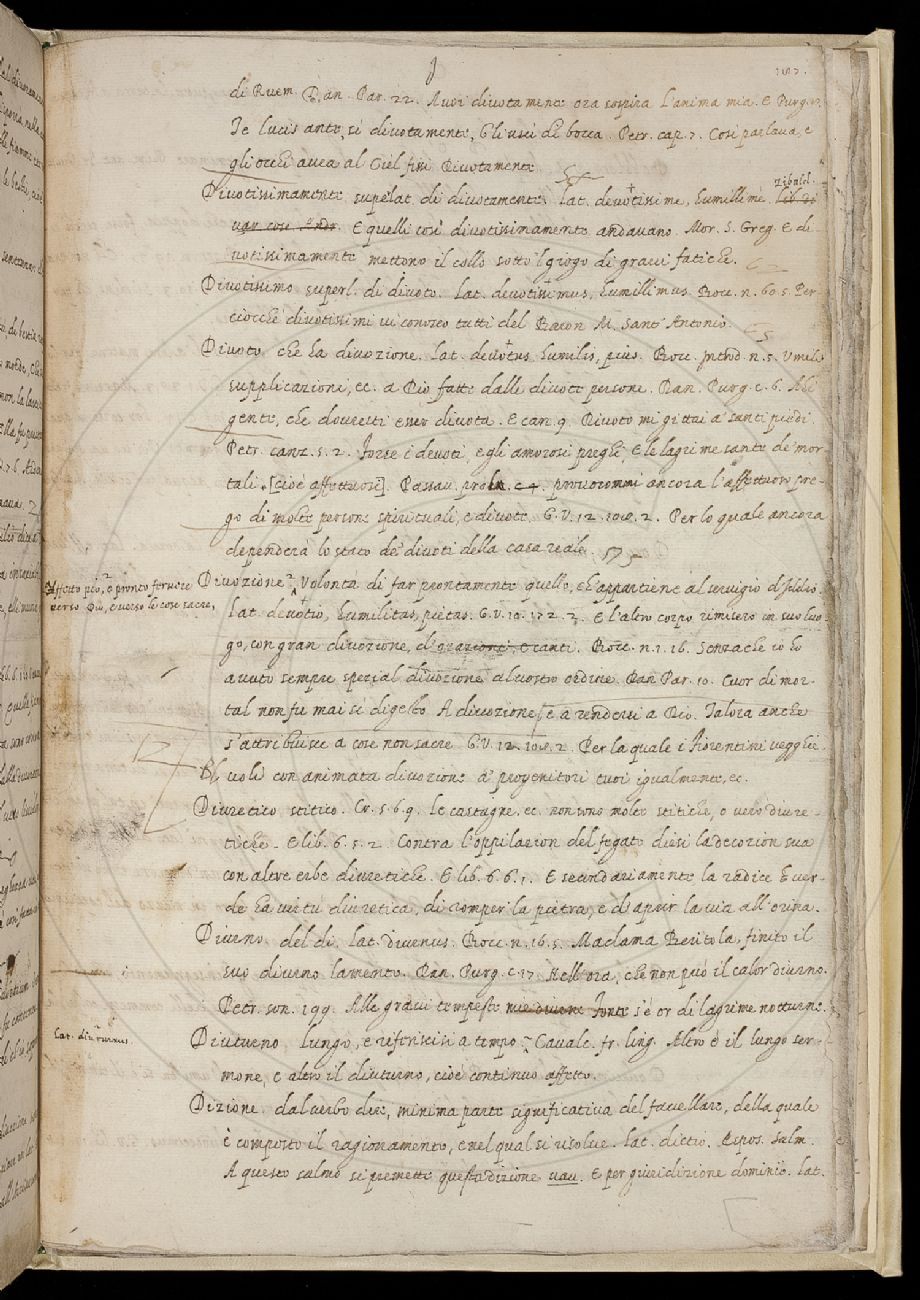 di Ruem. Dan. Par. 22. A voi divotamente ora sospira L'anima mia. E Purg.
Te lucis ante, sì divotamente, Gli uscì di bocca. Petr. cap. 7. Così parlava, e
gli occhi avea al Ciel fisi Divotamente
Divotissimamente superlat. di divotamente. Lat. devotissime, humillime. zibald.
E quelli così divotissimamente andavano. Mor. S. Greg. E di-
votissimamente mettono il collo sotto 'l giogo di gravi fatiche.
Divotissimo superl. di divoto. Lat. devotissimus, humillimus. Bocc. n. 60. 5. Per-
ciocchè divotissimi vi conosco tutti del Baron M. Sant' Antonio.
Divoto che ha divozione. Lat. devotus, humilis, pius. Bocc. introd. n. 5. Umili
supplicazioni, ec. a Dio fatte dalle divote persone. Dan. Purg. c. 6. Ahi
gente, che dovresti esser divota. E can. 9. Divoto mi gittai a' santi piedi.
Petr. canz. 5. 2. Forse i devoti, e gli amorosi preghi, E le lagrime sante de' mor-
tali. [cioè affettuosi]. Passav. prol. c. 4. provocommi ancora l'affettuoso pre-
go di molte persone spirituali, e divote. G.V. 12. 108. 2. Per lo quale ancora
dependerà lo stato de' divoti della casa reale.
Affetto pio, o pronto fervore
verso Dio, e verso le cose sacre,
Divozione Volontà di far prontamente quello, ch'appartiene al servigio d'Iddio.
Lat. devotio, humilitas, pietas. G.V. 10. 122. 3. E l'altro corpo rimisero in suo luo-
go, con gran divozione, d'orazioni, e canti. Bocc. n. 1. 16. Senzachè io ho
avuto sempre spezial divozione al vostro ordine. Dan. Par. 10. Cuor di mor-
tal non fu mai sì digesto A divozione, e a rendersi a Dio. Talora anche
s'attribuisce a cose non sacre G.V. 12. 108. 2. Per la quale i fiorentini vegghie-
voli con animata divozione a' progenitori tuoi igualmente, ec.
Diuretico stitico. Cr. 5. 6. 9. Le castagne, ec. non sono molto stitiche, o vero diure-
tiche. E lib. 6. 5. 2. Contra l'oppilazion del fegato diesi la decozion sua
con altre erbe diuretiche. E lib. 6. 6. 1. E secondariamente la radice è ver-
de ha vertù diuretica, di romper la pietra, e d'aprir la via all'orina.
Diurno del dì. lat. diurnus. Bocc. n. 16. 5. Madama Beritola, finito il
suo diurno lamento. Dan. Purg. c. 19. Nell'ora, che non può il calor diurno.
Petr. son. 199. Alle gravi tempeste mie diurne Fonte s'è or di lagrime notturne.
Lat. diuturnus.
Diuturno lungo, e riferiscisi a tempo. Cavalc. fr. ling. Altro è il lungo ser-
mone, e altro il diuturno, cioè continuo affetto.
Dizione dal verbo dire, minima parte significativa del favellare, della quale
è composto il ragionamento, e nel qual si risolve. lat. dictio. Espos. Salm.
A questo salmo si premette questa dizione vau. E per giuridizione dominio. lat.